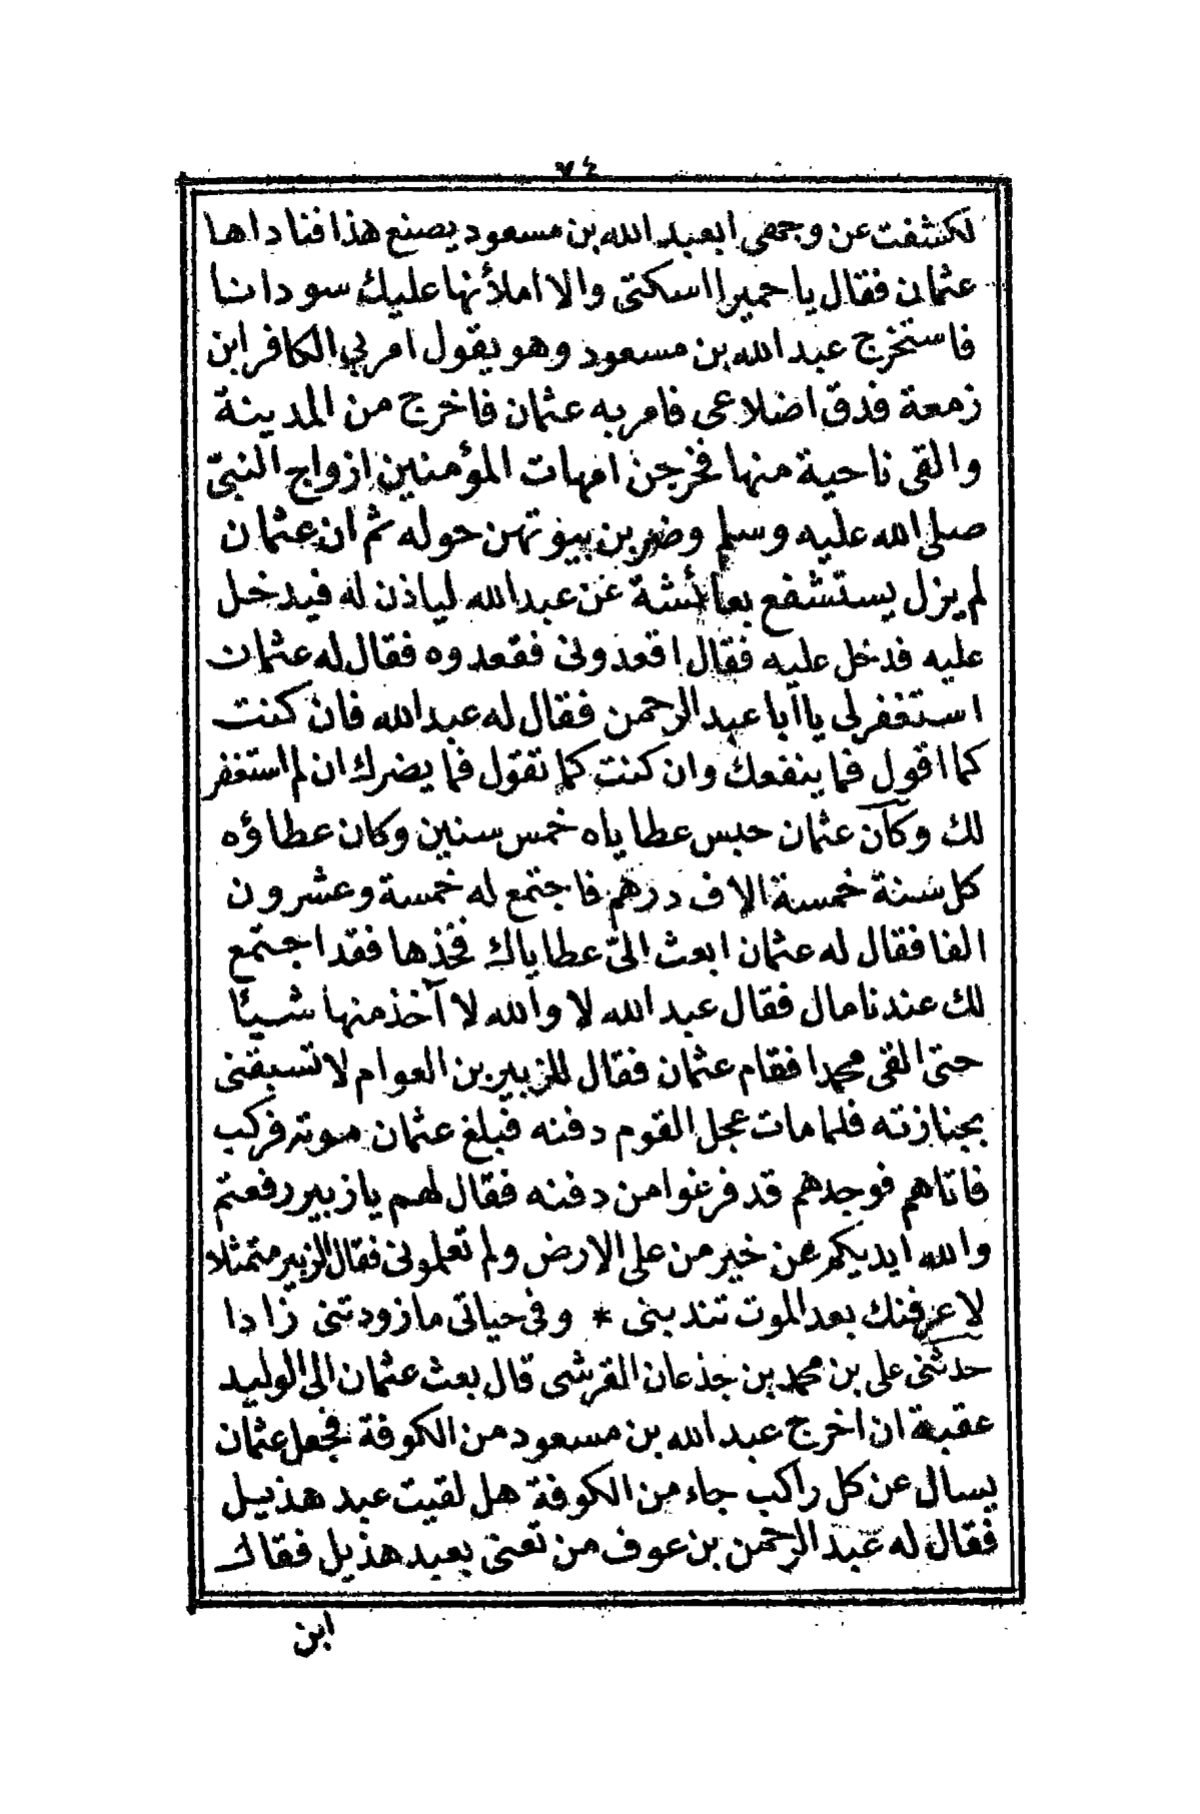 ٧٤
لكشفت عن وجهى ابعبد الله بن مسعود يصنع هذا فناداها
عثمان فقال يا حميرا اسكتى والا املأنها عليك سودانا
فاستخرج عبد الله بن مسعود وهو يقول امر بي الكافر ابن
زمعة فدق اضلاعى فامر به عثمان فاخرج من المدينة
والقى ناحية منها فخرجن امهات المؤمنين ازواج النبىّ
صلى الله عليه وسلم وضربن بيوتهن حوله ثم ان عثمان
لم يزل يستشفع بعائشة عن عبد الله لياذن له فيدخل
عليه فدخل عليه فقال اقعدونى فقعدوه فقال له عثمان
استغفر لى يا أبا عبد الرحمن فقال له عبد الله فان كنت
كما اقول فما ينفعك وان كنت كما تقول فما يضرك ان لم استغفر
لك وكان عثمان حبس عطاياه خمس سنين وكان عطاؤه
كل سنة خمسة الاف درهم فاجتمع له خمسة وعشرون
الفا فقال له عثمان ابعث الىّ عطاياك فخذها فقد اجتمع
لك عندنا مال فقال عبد الله لا والله لا آخذ منها شيئا
حتى القى محمدا فقام عثمان فقال للزبير بن العوام لا تسبقنى
بجنازته فلما مات عجل القوم دفنه فبلغ عثمان موته فركب
فاتاهم فوجدهم قد فرغوا من دفنه فقال لهم يا زبير رفعتم
والله ايديكم عن خير من على الارض ولم تعلمونى فقال الزبير متمثلا
لاعرفنك بعد الموت تندبنى * وفى حياتى ما زودتنى زادا
حدثنى على بن محمد بن جذعان القرشى قال بعث عثمان الى الوليد
عقبة ان اخرج عبد الله بن مسعود من الكوفة فجعل عثمان
يسال عن كل راكب جاء من الكوفة هل لقيت عبد هذيل
فقال له عبد الرحمن بن عوف من تعنى بعبد هذيل فقال
ابن